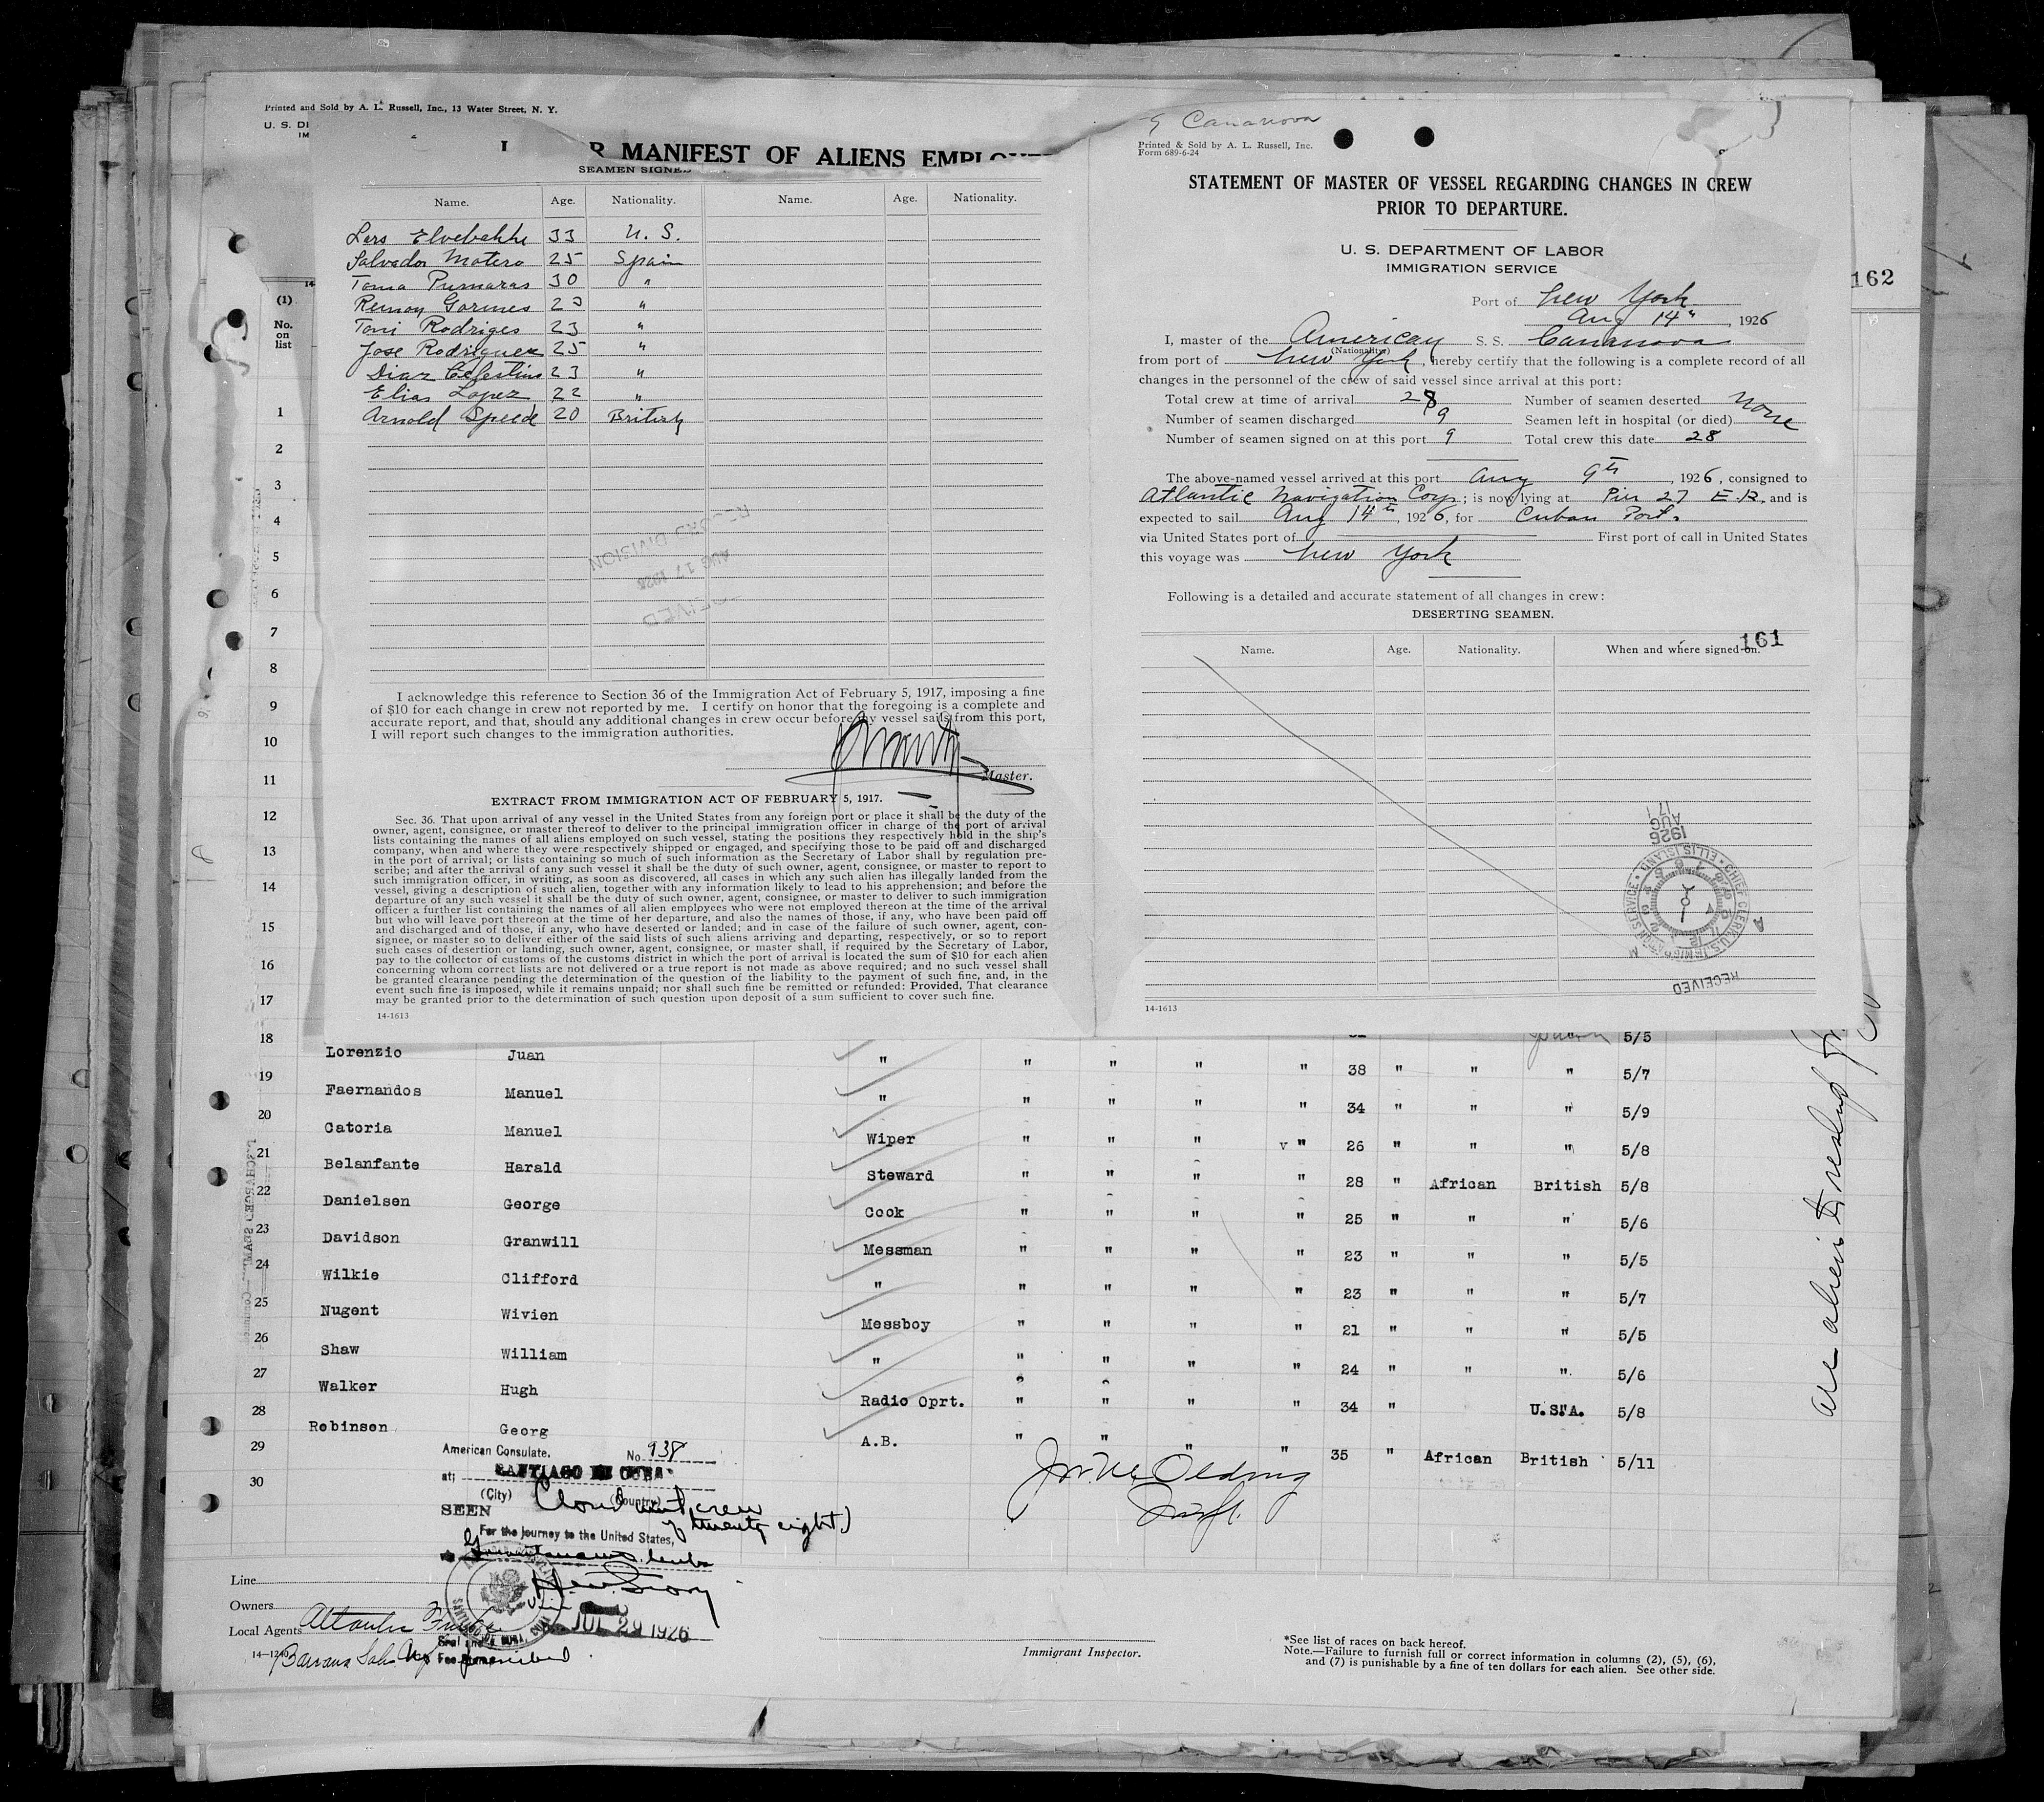 Printed and Sold by A. L. Russell, Inc., 13 Water Street, N. Y.
U. S. DI
IM
R MANIFEST OF ALIENS EMPLOYE
SEAMEN SIGNED
Name. Age. Nationality. Name. Age. Nationality.
Lars Elvebakke 33 U. S.
Salvador Motero 25 Spain
Toma Pumaras 30 "
Remon Gormes 23 "
Toni Rodriges 23 "
Jose Rodriguez 25 "
Diaz Celestino 23 "
Elias Lopez 22 "
Arnold Speed 20 British
RECORD DIVISION
AUG 17 1926
RECEIVED
I acknowledge this reference to Section 36 of the Immigration Act of February 5, 1917, imposing a fine
of $10 for each change in crew not reported by me. I certify on honor that the foregoing is a complete and
accurate report, and that, should any additional changes in crew occur before my vessel sails from this port,
I will report such changes to the immigration authorities.
Master.
EXTRACT FROM IMMIGRATION ACT OF FEBRUARY 5, 1917.
Sec. 36. That upon arrival of any vessel in the United States from any foreign port or place it shall be the duty of the
owner, agent, consignee, or master thereof to deliver to the principal immigration officer in charge of the port of arrival
lists containing the names of all aliens employed on such vessel, stating the positions they respectively hold in the ship's
company, when and where they were respectively shipped or engaged, and specifying those to be paid off and discharged
in the port of arrival; or lists containing so much of such information as the Secretary of Labor shall by regulation pre-
scribe; and after the arrival of any such vessel it shall be the duty of such owner, agent, consignee, or master to report to
such immigration officer, in writing, as soon as discovered, all cases in which any such alien has illegally landed from the
vessel, giving a description of such alien, together with any information likely to lead to his apprehension; and before the
departure of any such vessel it shall be the duty of such owner, agent, consignee, or master to deliver to such immigration
officer a further list containing the names of all alien employees who were not employed thereon at the time of the arrival
but who will leave port thereon at the time of her departure, and also the names of those, if any, who have been paid off
and discharged and of those, if any, who have deserted or landed; and in case of the failure of such owner, agent, con-
signee, or master so to deliver either of the said lists of such aliens arriving and departing, respectively, or so to report
such cases of desertion or landing, such owner, agent, consignee, or master shall, if required by the Secretary of Labor,
pay to the collector of customs of the customs district in which the port of arrival is located the sum of $10 for each alien
concerning whom correct lists are not delivered or a true report is not made as above required; and no such vessel shall
be granted clearance pending the determination of the question of the liability to the payment of such fine, and, in the
event such fine is imposed, while it remains unpaid; nor shall such fine be remitted or refunded: Provided, That clearance
may be granted prior to the determination of such question upon deposit of a sum sufficient to cover such fine.
14-1613
Cananova
Printed & Sold by A. L. Russell, Inc.
Form 689-6-24
STATEMENT OF MASTER OF VESSEL REGARDING CHANGES IN CREW
PRIOR TO DEPARTURE.
U. S. DEPARTMENT OF LABOR
IMMIGRATION SERVICE
162
Port of New York
Aug 14", 1926
I, master of the American S. S. Cananova
(Nationality)
from port of New York, hereby certify that the following is a complete record of all
changes in the personnel of the crew of said vessel since arrival at this port:
Total crew at time of arrival 28 Number of seamen deserted None
Number of seamen discharged 9 Seamen left in hospital (or died)
Number of seamen signed on at this port 9 Total crew this date 28
The above-named vessel arrived at this port Aug 9th, 1926, consigned to
Atlantic Navigation Corp; is now lying at Pier 27 E.R. and is
expected to sail Aug 14th, 1926, for Cuban Port.
via United States port of First port of call in United States
this voyage was New York
Following is a detailed and accurate statement of all changes in crew:
DESERTING SEAMEN.
161
Name. Age. Nationality. When and where signed on.
1926
AUG
17
CHIEF CLERK, U.S. IMMIGRATION SERVICE · ELLIS ISLAND
RECEIVED
14-1613
(1)
No.
on
list
1
2
3
4
5
6
7
8
9
10
11
12
13
14
15
16
17
18 5/5
Lorenzio Juan " " " " " 38 " " " 5/7
19
Faernandos Manuel " " " " " 34 " " " 5/9
20
Catoria Manuel Wiper " " " v " 26 " " " 5/8
21
Belanfante Harald Steward " " " " 28 " African British 5/8
22
Danielsen George Cook " " " " 25 " " " 5/6
23
Davidson Granwill Messman " " " " 23 " " " 5/5
24
Wilkie Clifford " " " " " 23 " " " 5/7
25
Nugent Wivien Messboy " " " " 21 " " " 5/5
26
Shaw William " " " " " 24 " " " 5/6
27
Walker Hugh Radio Oprt. " " " " 34 " U.S.A. 5/8
28
Robinson Georg A.B. " " " " 35 " African British 5/11
29
30
American Consulate. No 938
at; SANTIAGO DE CUBA
(City) (Country)
SEEN
twenty eight)
For the journey to the United States,
JUL 29 1926
Line
Owners
Local Agents
14-1240
Immigrant Inspector.
*See list of races on back hereof.
Note.—Failure to furnish full or correct information in columns (2), (5), (6),
and (7) is punishable by a fine of ten dollars for each alien. See other side.